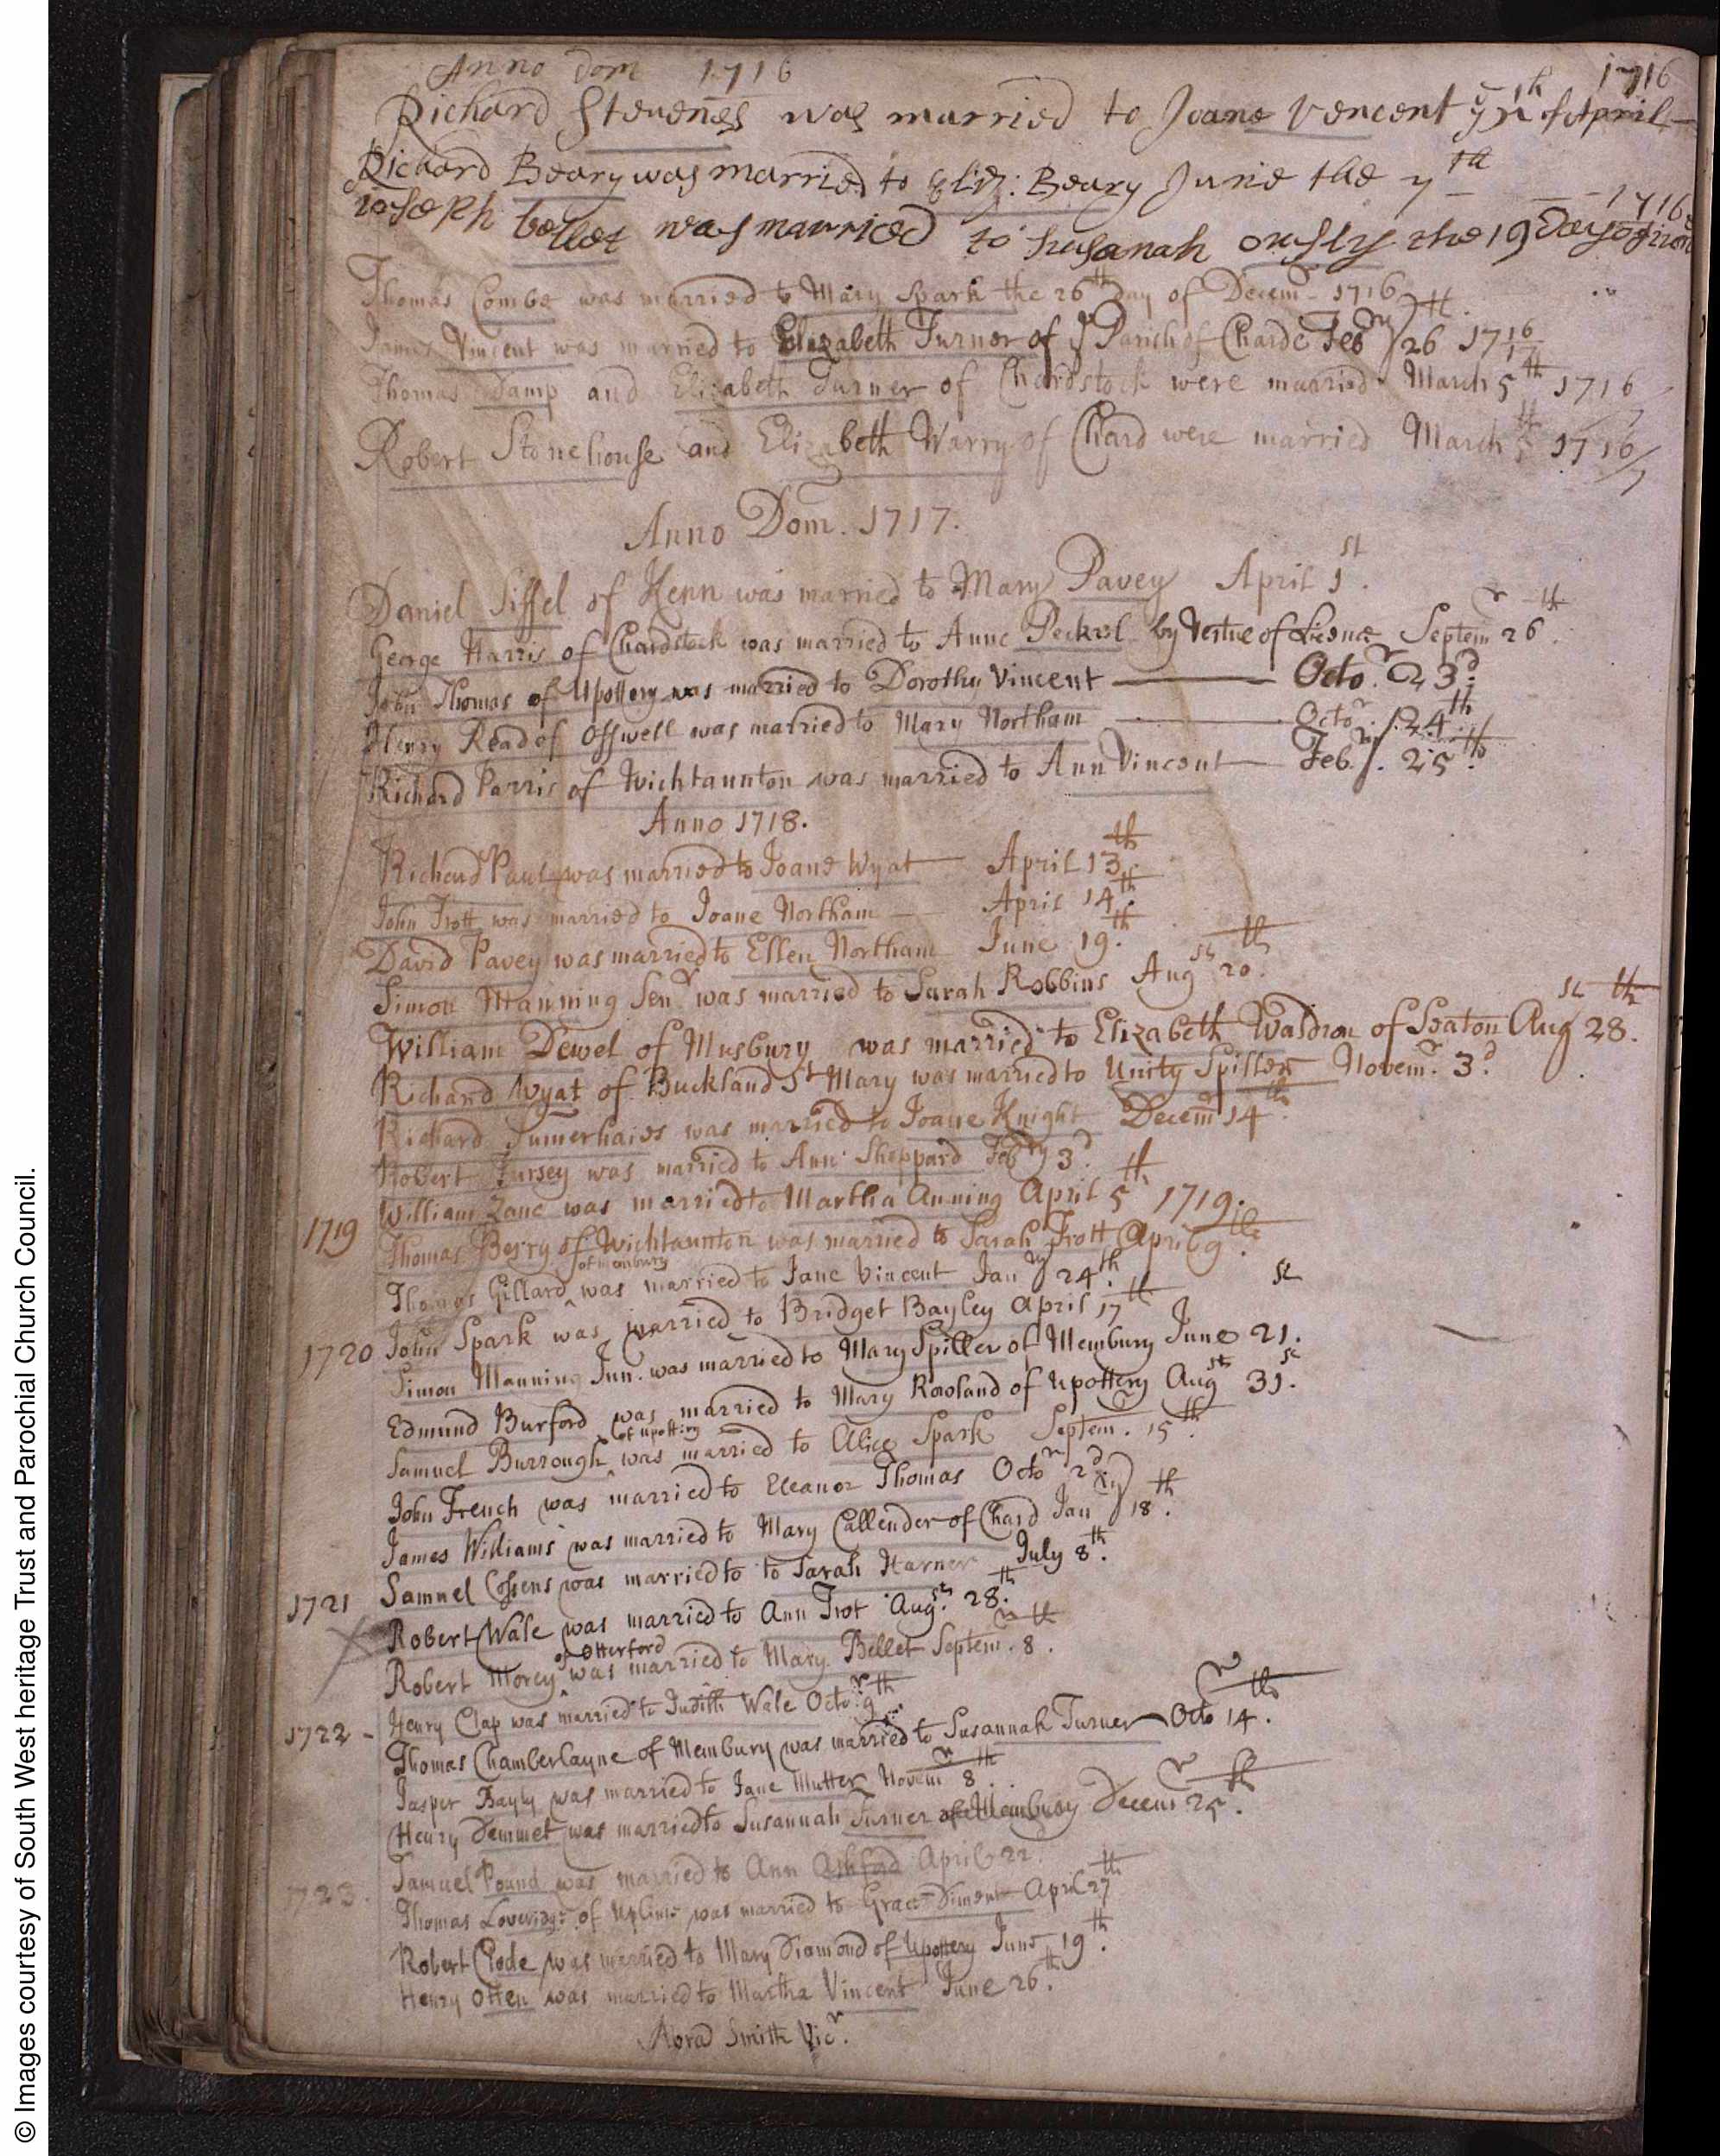 Anno Dom 1716
1716
Richard Stevenes was married to Joane Vencent of April
Richard Beary was married to Eliz: Beary June the 7th
1716
ioseph bellet was married to susanah the 19 Day of
Thomas Combe was married to Mary Spark the 26th Day of Decemr 1716
James Vincent was married to Elizabeth Turner of ye Parish of Charde Febry 26th 1716/17
Thomas Damp and Elizabeth Turner of Chardstock were married March 5th 1716/7
Robert Stonehouse and Elizabeth Warry of Chard were married March 5th 1716/7
Anno Dom. 1717.
Daniel Siffel of Kenn was married to Mary Pavey April 1st.
George Harris of Chardstock was married to Anne by Vertue of Licence Septemr 26th.
John Thomas of Upottery was married to Dorothy Vincent — Octor. 23d.
Henry Read of Offwell was married to Mary Northam — Octor. 24th
Richard Parris of Wichtaunton was married to Ann Vincent — Febry. 25th.
Anno 1718.
Richard Paul was married to Joane Wyat — April 13th.
John Trott was married to Joane Northam — April 14th.
David Pavey was married to Ellen Northam June 19th.
Simon Manning Senr was married to Sarah Robbins Augst 20th.
William Dewel of Musbury was married to Elizabeth Waldron of Seaton Augst 28th.
Richard Wyat of Buckland St Mary was married to Unity Spiller Novemr. 3d.
Richard Sumerhaies was married to Joane Knight Decemr 14th.
Robert Jursey was married to Ann Sheppard Febry 3d.
William Zane was married to Martha Anning April 5th 1719.
1719 Thomas Berry of Wichtaunton was married to Sarah Trott April 9th.
Thomas Gillard of Membury was married to Jane Vincent Janry 24th.
1720 John Spark was married to Bridget Bayley April 17th
Simon Manning Jun. was married to Mary Spiller of Membury June 21st.
Edmund Burford was married to Mary Rowland of Upottery Augst 31st.
Samuel Burrough of Upottery was married to Alice Spark Septemr. 15th.
John French was married to Eleanor Thomas Octor 2d
James Williams was married to Mary Callender of Chard Janry 18th.
1721 Samuel Cossens was married to to Sarah Harner July 8th.
Robert Wale was married to Ann Trot Augst. 28th.
Robert Morey of Otterford was married to Mary Bellet Septemr. 8th.
1722 - Henry Clap was married to Judith Wale Octor. 9th
Thomas Chamberlayne of Membury was married to Susannah Turner — Octor 14th.
Jasper Bayly was married to Jane Mutter Novemr 8th.
Henry Demmet was married to Susannah Turner of Membury Decemr 25th.
1723. Samuel Pound was married to Ann Ashford April 22.
Thomas Loveridge of Uplime was married to Grace Diment April 27th
Robert Clode was married to Mary Diamond of Upottery June 19th.
Henry Otten was married to Martha Vincent June 26th.
Abrad Smith Vicr.
© Images courtesy of South West heritage Trust and Parochial Church Council.